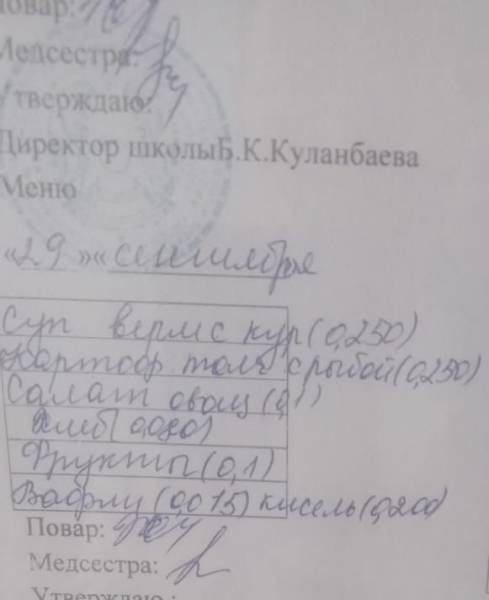 Повар:
Медсестра:
Утверждаю:
Директор школыБ.К.Куланбаева
Меню
«29»«сентября
Суп вермс кур(0,250)
Картоф толч с рыбой(0,250)
Салат овощ (0,1)
Хлеб(0,080)
Фрукты(0,1)
Вафли (0,015) кисель(0,200)
Повар:
Медсестра:
Утверждаю :